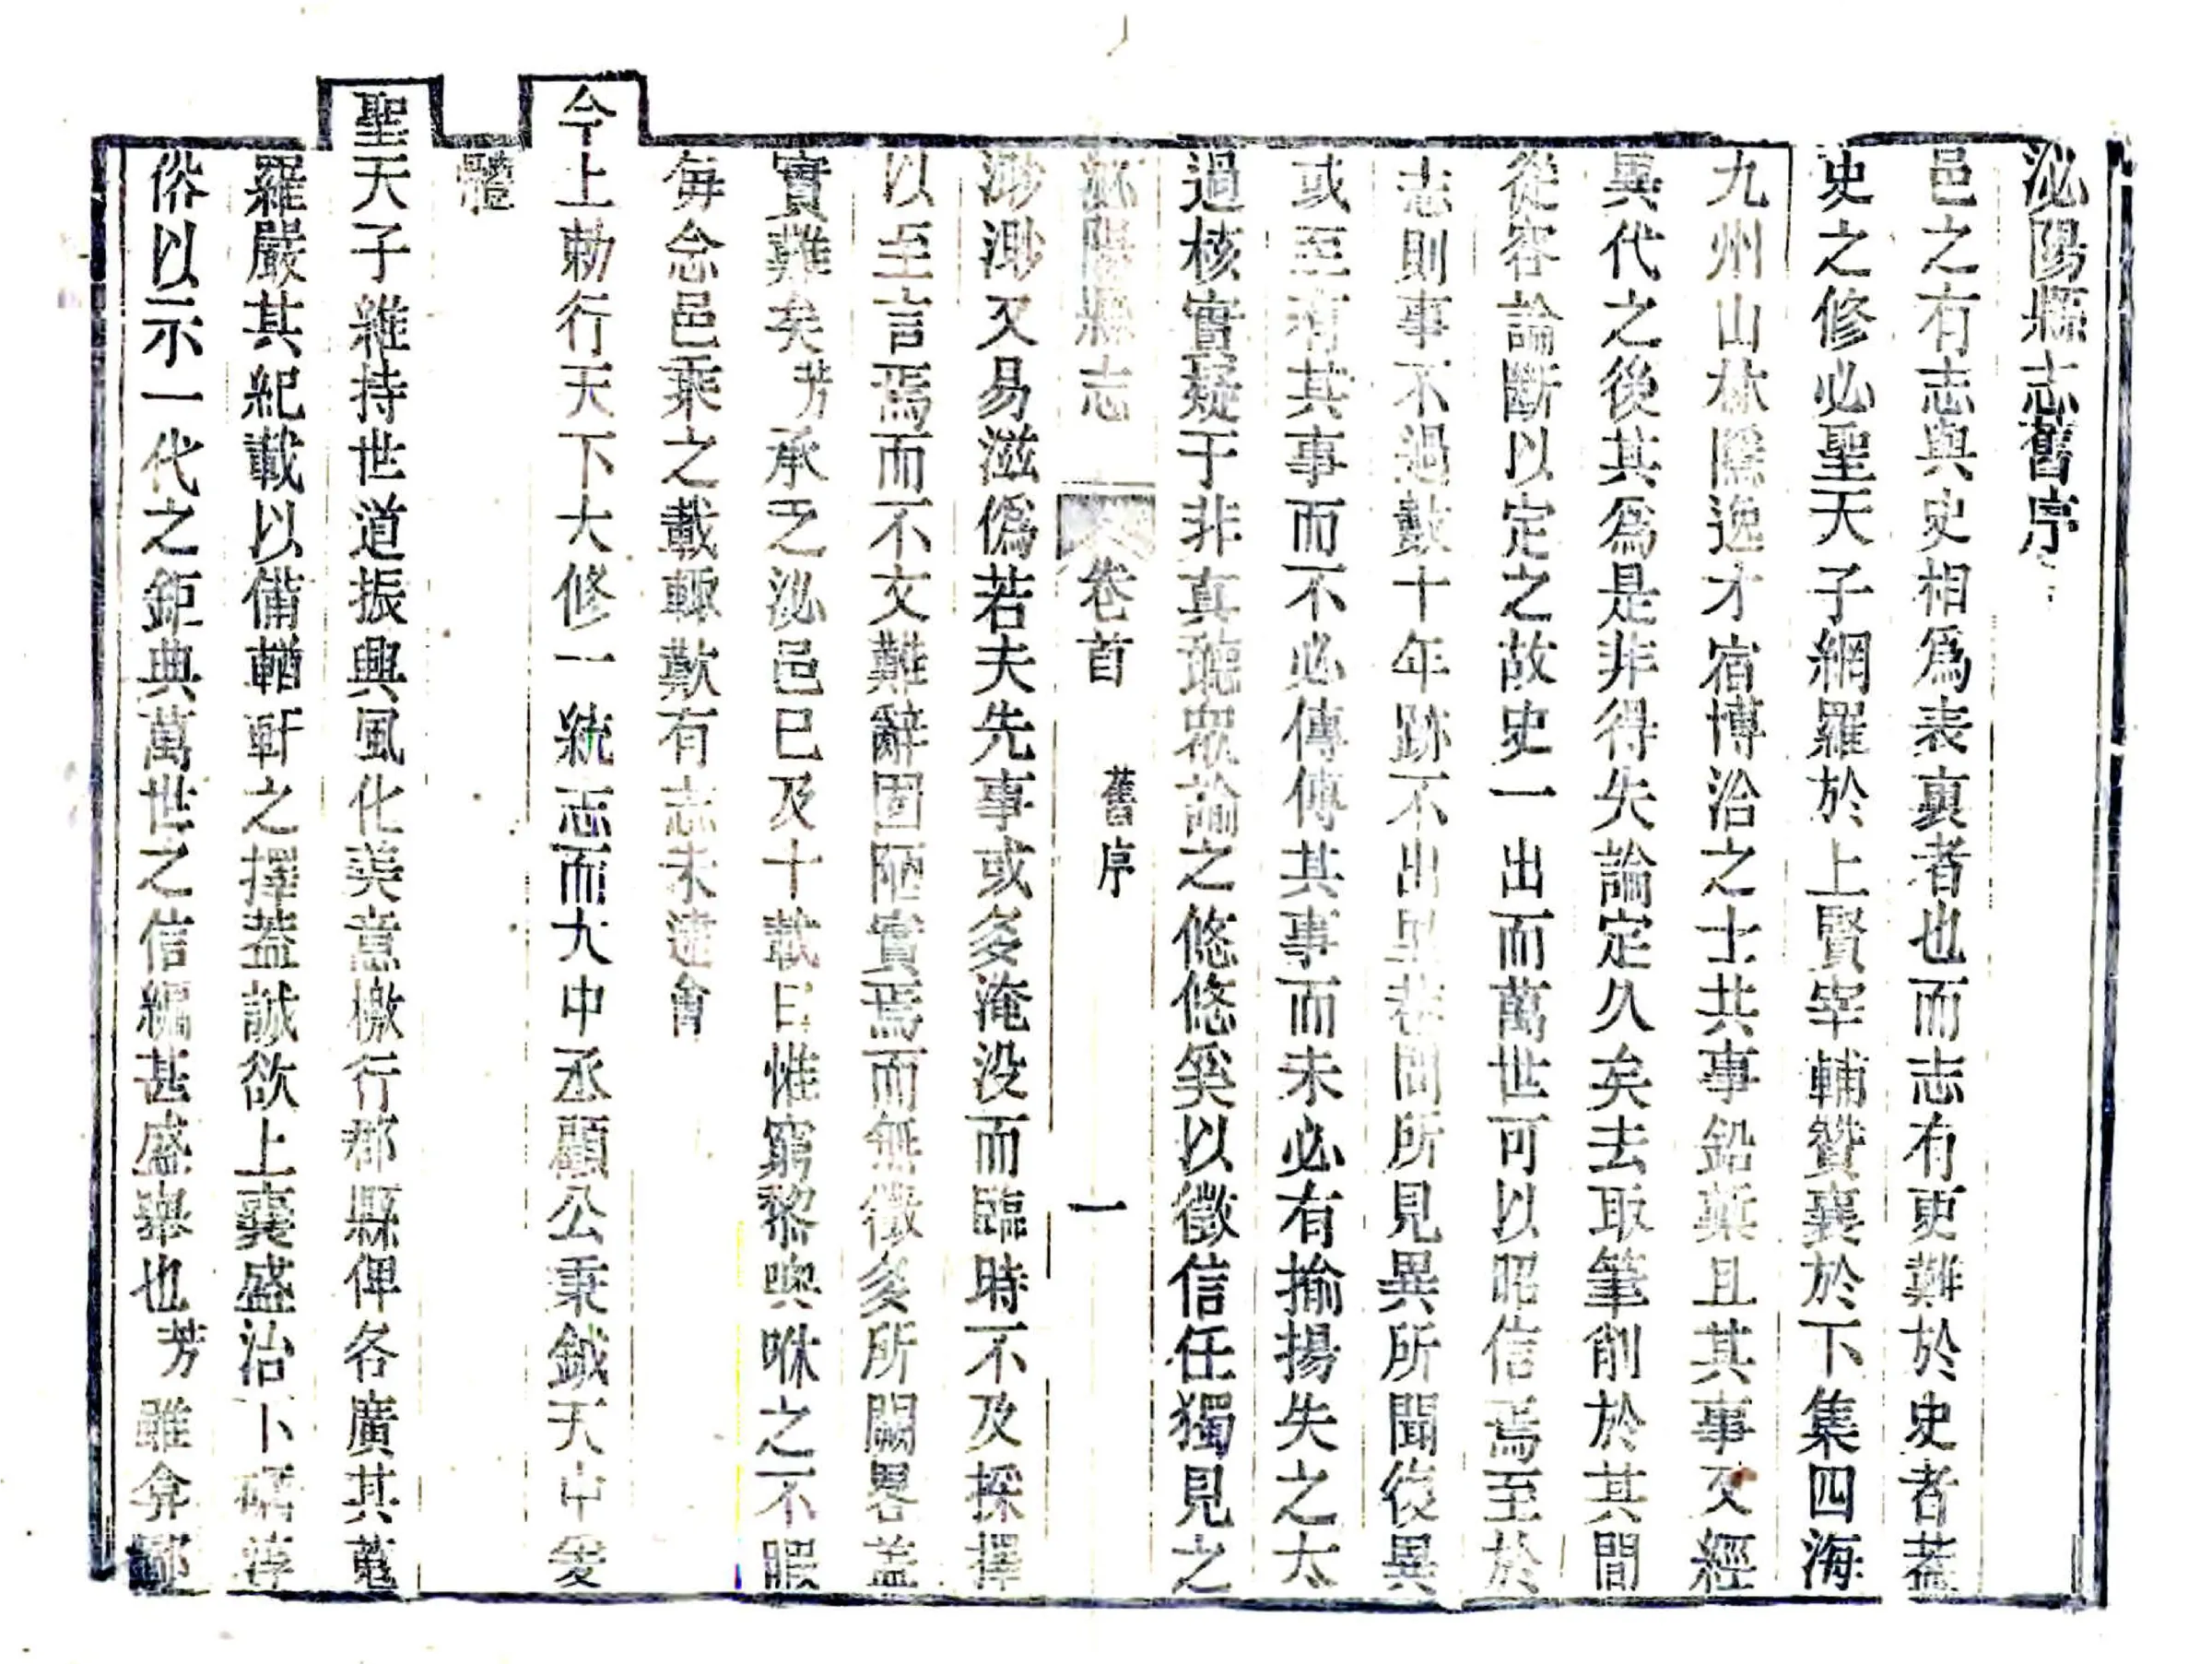 泌陽縣志舊序
邑之有志與史相爲表裏者也而志有更難於史者葢
史之修必聖天子網羅於上賢宰輔贊襄於下集四海
九州山林隱逸才宿博洽之士共事鉛槧且其事又經
異代之後其爲是非得失論定久矣去取筆削於其間
從容論斷以定之故史一出而萬世可以昭信焉至於
志則事不過數十年跡不出里巷間所見異所聞復異
或至有其事而不必傳傳其事而未必有揄揚失之太
過核實疑于非真聽眾論之悠悠奚以徵信任獨見之
泌陽縣志 卷首 舊序 一
渺渺又易滋僞若夫先事或多淹没而臨時不及採擇
以至言焉而不文難辭固陋實焉而無徵多所闕畧盖
實難矣芳承乏泌邑已及十載日惟窮黎噢咻之不暇
每念邑乘之載輒歎有志未逮會
今上勅行天下大修一統志而大中丞顧公秉鉞天中爰
體
聖天子維持世道振興風化美意檄行郡縣俾各廣其蒐
羅嚴其紀載以備輶軒之擇葢誠欲上襄盛治下
俗以示一代之鉅典萬世之信編甚盛舉也芳雖弇鄙